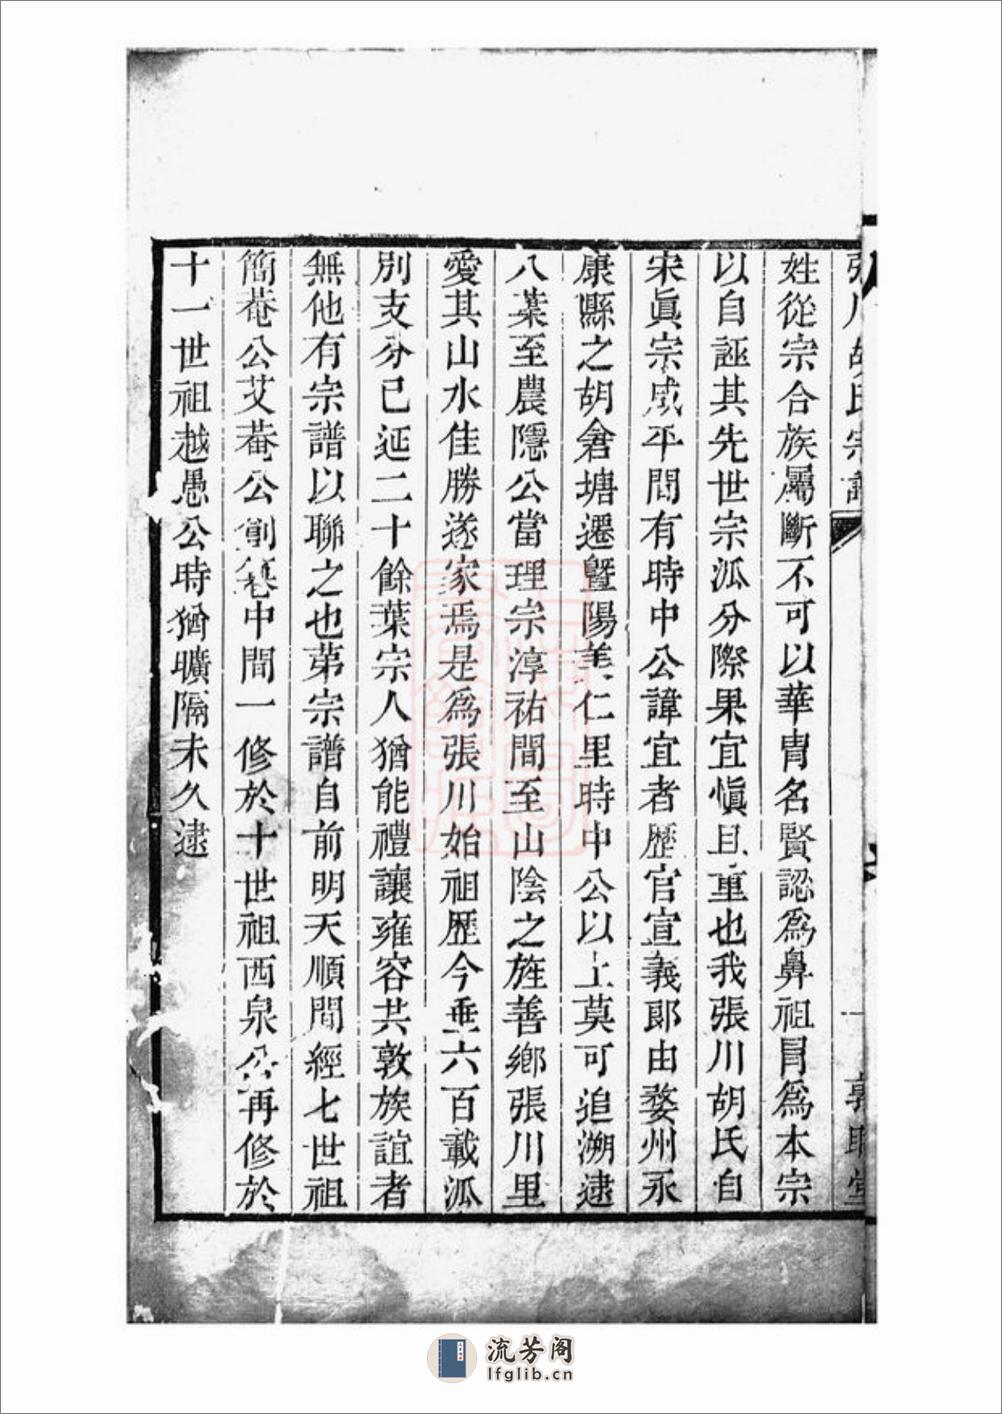 張川胡氏宗譜
敦睦堂
姓從宗合族屬斷不可以華胄名賢認爲鼻祖冐爲本宗
以自誣其先世宗泒分際果宜愼且重也我張川胡氏自
宋眞宗咸平間有時中公諱宜者歷官宣義郎由婺州永
康縣之胡倉塘遷曁陽美仁里時中公以上莫可追溯逮
八葉至農隱公當理宗淳祐間至山陰之旌善鄉張川里
愛其山水佳勝遂家焉是爲張川始祖歷今垂六百載泒
別支分已延二十餘葉宗人猶能禮讓雍容共敦族誼者
無他有宗譜以聯之也苐宗譜自前明天順間經七世祖
簡菴公艾菴公創纂中間一修於十世祖西泉公再修於
十一世祖越愚公時猶曠隔未久逮
流芳阁
lfglib.cn